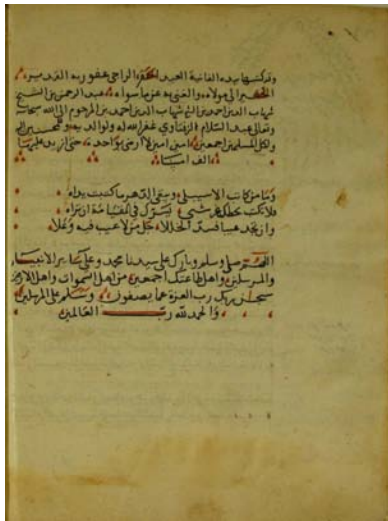 وقد كتبها بيده الفانية العبد الحقير الراجي عفو ربه القدير
الفقير الى مولاه، والغني به عن ما سواه عبد الرحمن بن الشيخ
شهاب الدين احمد بن الشيخ شهاب الدين احمد بن المرحوم الى الله سبحانه
وتعالى عبد السلام الزفتاوي غفر الله له ولوالديه
ولكل المسلمين اجمعين امين امين لا ارضى بواحدة حتى ازيد عليها
الف امينا
وما من كاتب الا سيبلى ويبقي الدهر ما كتبت يداه
فلا تكتب بخطك غير شيء يسرك في القيامة ان تراه
وان تجد عيبا فسد الخللا جل من لا عيب فيه وعلا
اللهم صلي وسلم وبارك على سيدنا محمد وعلى سائر الانبياء
والمرسلين واهل طاعتك اجمعين من اهل السموات واهل الارض
سبحان ربك رب العزة عما يصفون وسلام على المرسلين
والحمد لله رب العالمين